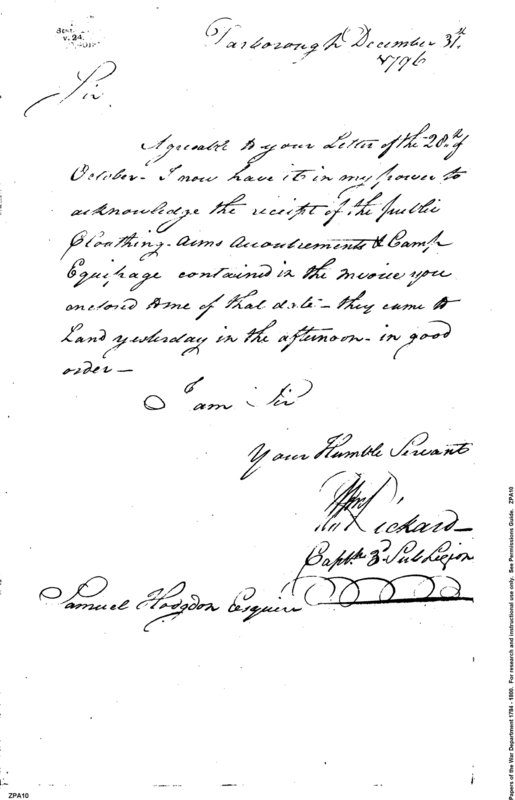 v. 24.
Tarborough December 31st
1796
Sir
Agreeable to your Letter of the 28th of
October - I now have it in my power to
acknowledge the receipt of the public
Cloathing - Arms Accoutrements & Camp
Equipage contained in the Invoice you
enclosed to me of that date - they came to
Land yesterday in the afternoon - in good
order -
I am Sir
Your Humble Servant
Wm Rickard
Captn. 3d Sub Legion
Samuel Hodgdon Esquire
ZPA10
Papers of the War Department 1784 - 1800. For research and instructional use only. See Permissions Guide. ZPA10